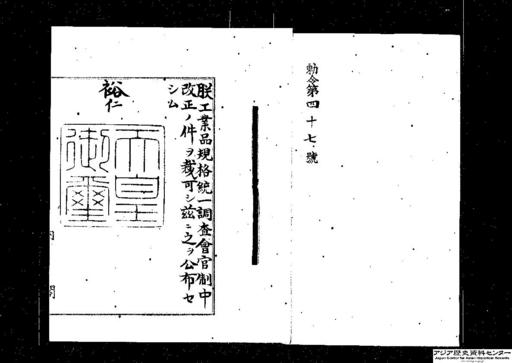 勅令第四十七號
朕工業品規格統一調査會官制中
改正ノ件ヲ裁可シ茲ニ之ヲ公布セ
シム
裕仁
天皇
御璽
内閣
アジア歴史資料センター
Japan Center for Asian Historical Records